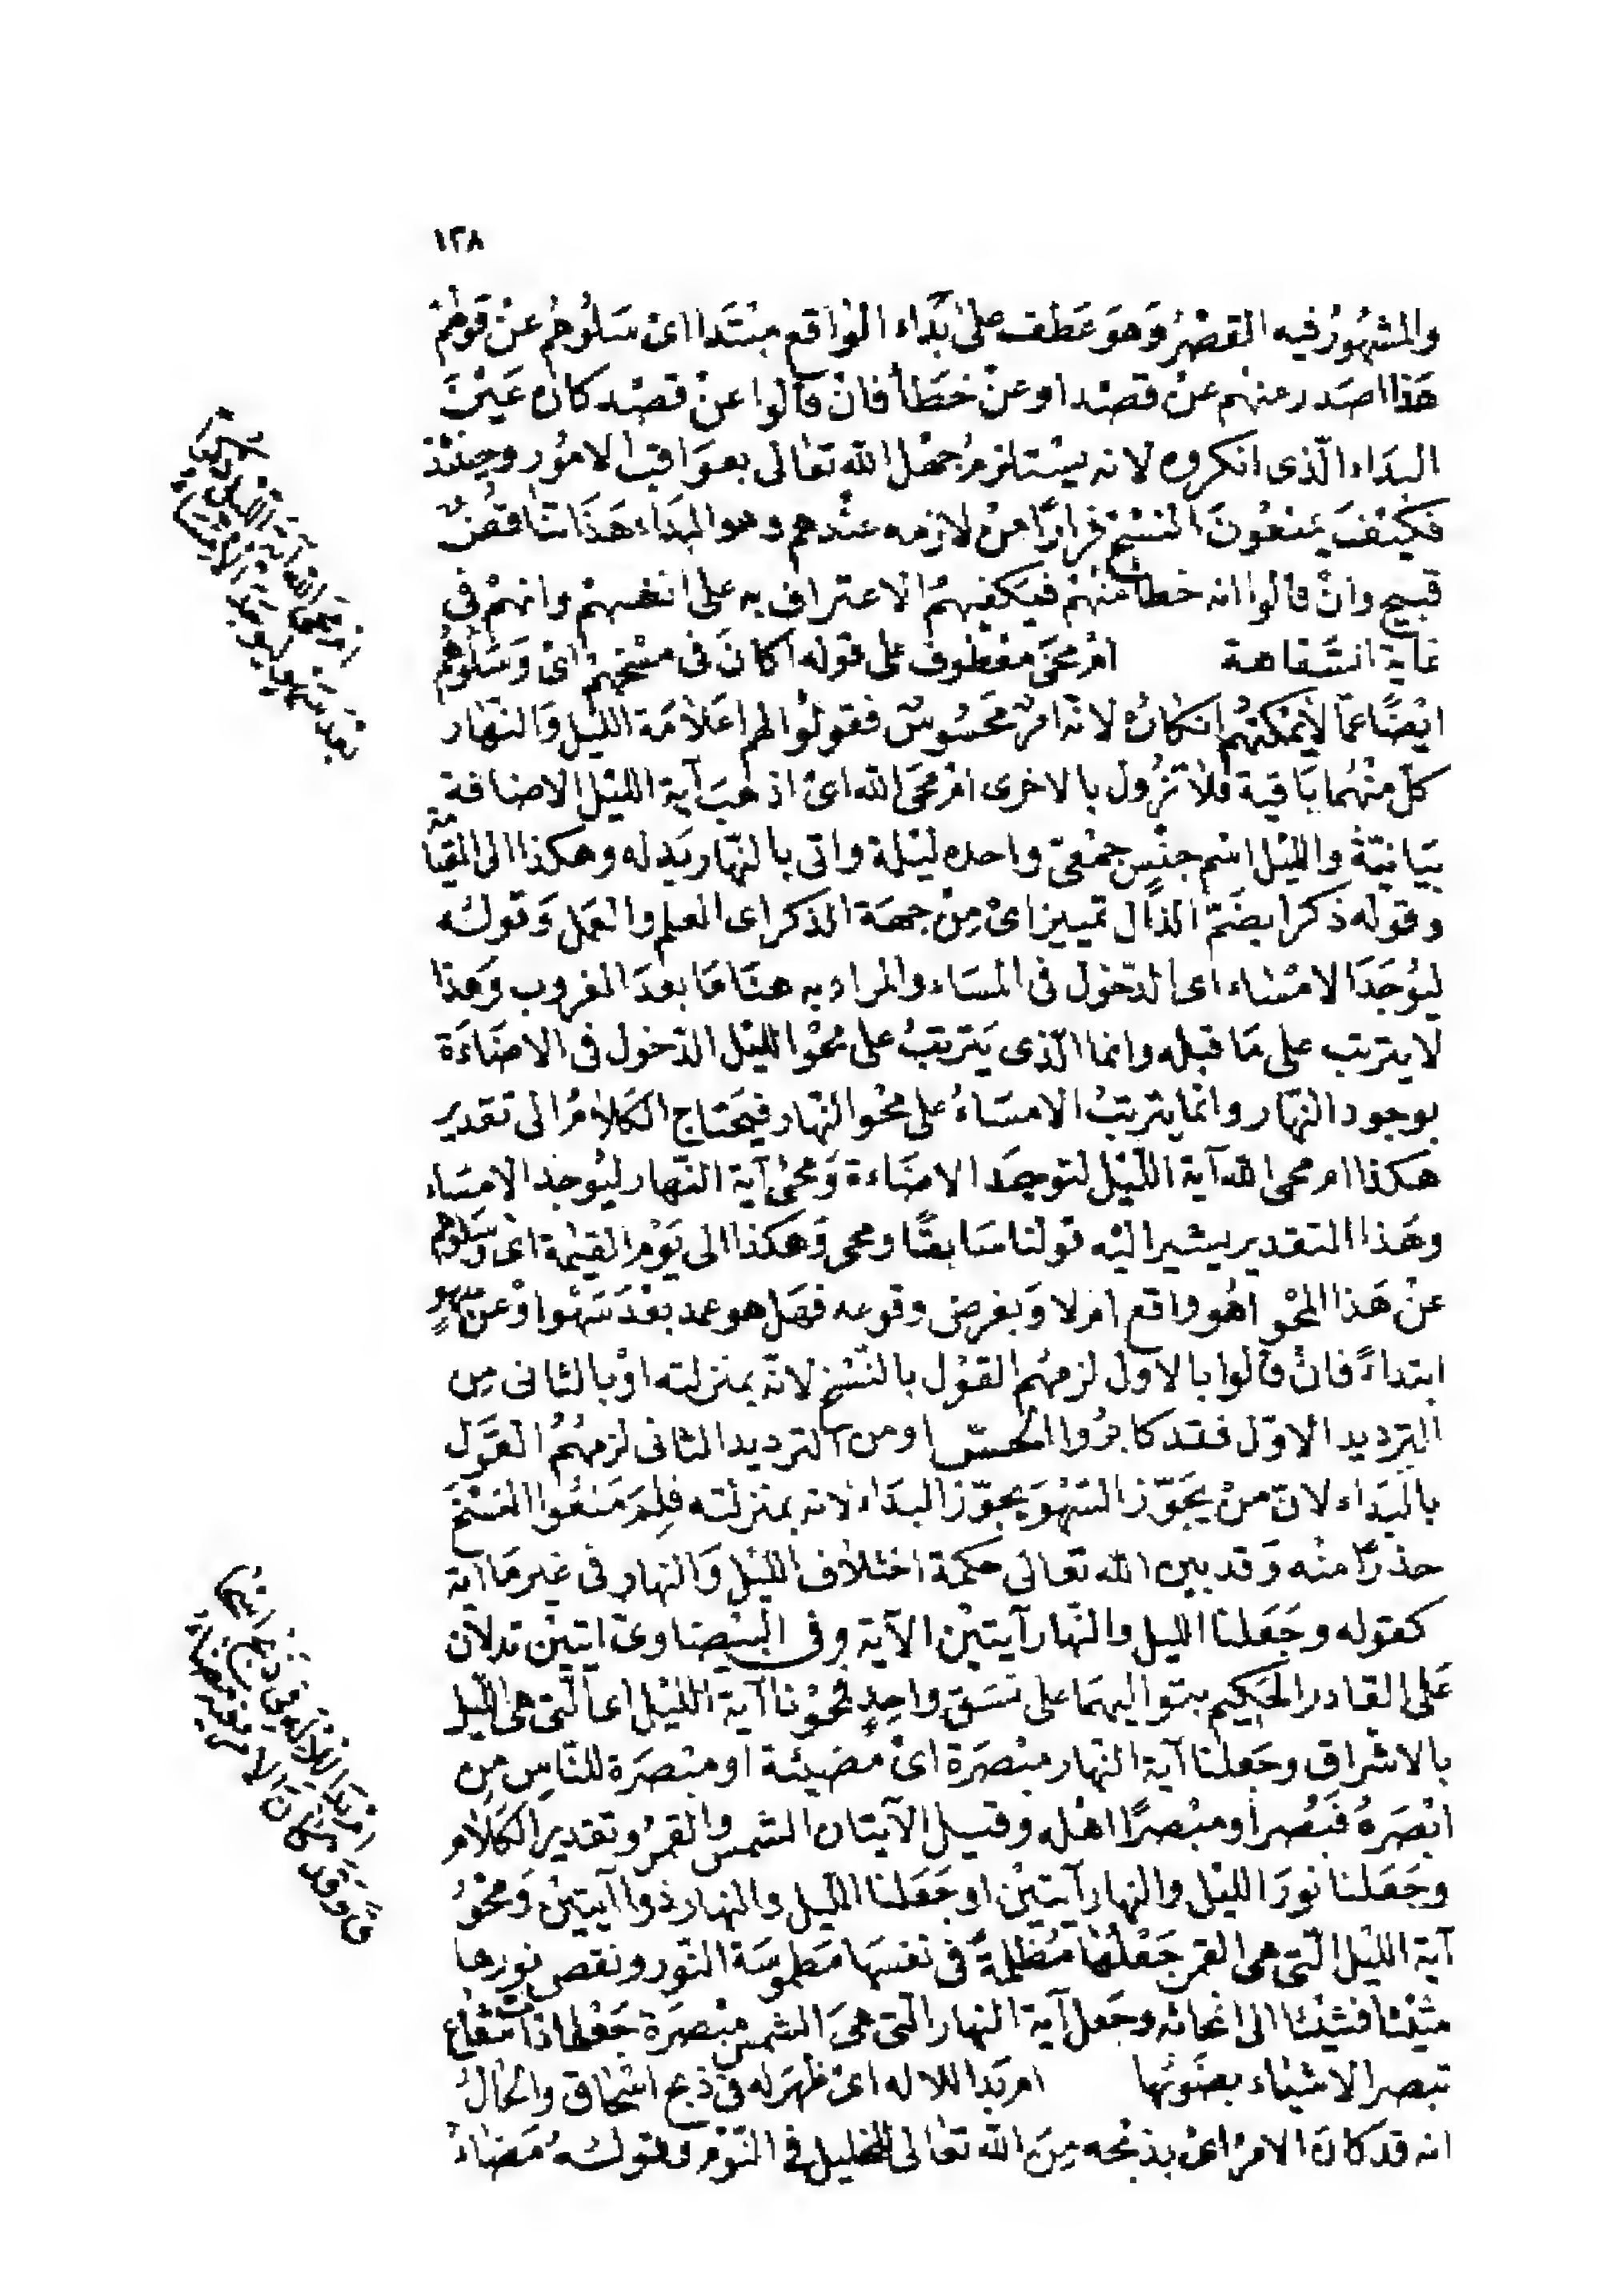 ١٢٨
والمشهور فيه القصر وهو عطف على بداء الواقع مبتدا اى سلوهم عن قولهم
هذا اصدر منهم عن قصد او عن خطأ فان قالوا عن قصد كان عين
البداء الذى انكروه لانه يستلزم جهل الله تعالى بعواقب الامور وحينئذ
فكيف يمنعون النسخ فرارا من لازمه عندهم وهو البداء هذا تناقض
قبيح وان قالوا انه خطأ منهم فيكفيهم الاعتراف به على انفسهم وانهم فى
غاية السفاهة ام محى معطوف على قوله اكان فى مسخهم اى وسلوهم
ايضا عما لا يمكنهم انكاره لانه امر محسوس فقولوا لهم اعلامة الليل والنهار
كل منهما باقية فلا تزول بالاخرى ام محى الله اى اذهب آية الليل الاضافة
بيانية والليل اسم جنس جمعى واحده ليلة واتى بالنهار بدله وهكذا الى القيامة
وقوله ذكرا بضم الذال تمييز اى من جهة الذكر اى العلم والعمل وقوله
ليوجد الامساء اى الدخول فى المساء والمراد به هنا ما بعد الغروب وهذا
لا يترتب على ما قبله وانما الذى يترتب على محو الليل الدخول فى الاضاءة
بوجود النهار وانما يترتب الامساء على محو النهار فيحتاج الكلام الى تقدير
هكذا ام محى الله آية الليل لتوجد الاضاءة ومحى آية النهار ليوجد الامساء
وهذا التقدير يشير اليه قولنا سابقا ومحى وهكذا الى يوم القيمة اى وسلوهم
عن هذا المحو اهو واقع ام لا وبفرض وقوعه فهل هو عمد بعد سهو او عن سهو
ابتداء فان قالوا بالاول لزمهم القول بالنسخ لانه بمنزلته او بالثانى من
الترديد الاول فقد كابروا الحس او من الترديد الثانى لزمهم القول
بالبداء لان من يجوز السهو يجوز البداء لانه بمنزلته فلم منعوا النسخ
حذرا منه وقد بين الله تعالى حكمة اختلاف الليل والنهار فى غير ما آية
كقوله وجعلنا الليل والنهار آيتين الآية وفى البيضاوى اتيتين تدلان
على القادر الحكيم بتواليهما على نسق واحد فمحونا آية الليل اى التى هى الليل
بالاشراق وجعلنا آية النهار مبصرة اى مضيئة او مبصرة للناس من
ابصره فبصر او مبصرا اهله وقيل الآيتان الشمس والقمر وتقدير الكلام
وجعلنا نور الليل والنهار آيتين او جعلنا الليل والنهار ذوا آيتين ومحو
آية الليل التى هى القمر جعلها مظلمة فى نفسها مطموسة النور ونقص نورها
شيئا فشيئا الى انمحائه وجعل آية النهار التى هى الشمس مبصرة جعلها ذات شعاع
تبصر الاشياء بضوئها ام بدا للاله اى ظهر له فى ذبح اسحاق والحال
انه قد كان الامر اى بذبحه من الله تعالى للخليل فى النوم وقوله مضاء
ام محى الله آية الليل ذكرا
بعد سهو ليوجد الامساء
ام بدا للاله فى ذبح اسحا
ق وقد كان الامر فيه مضاء